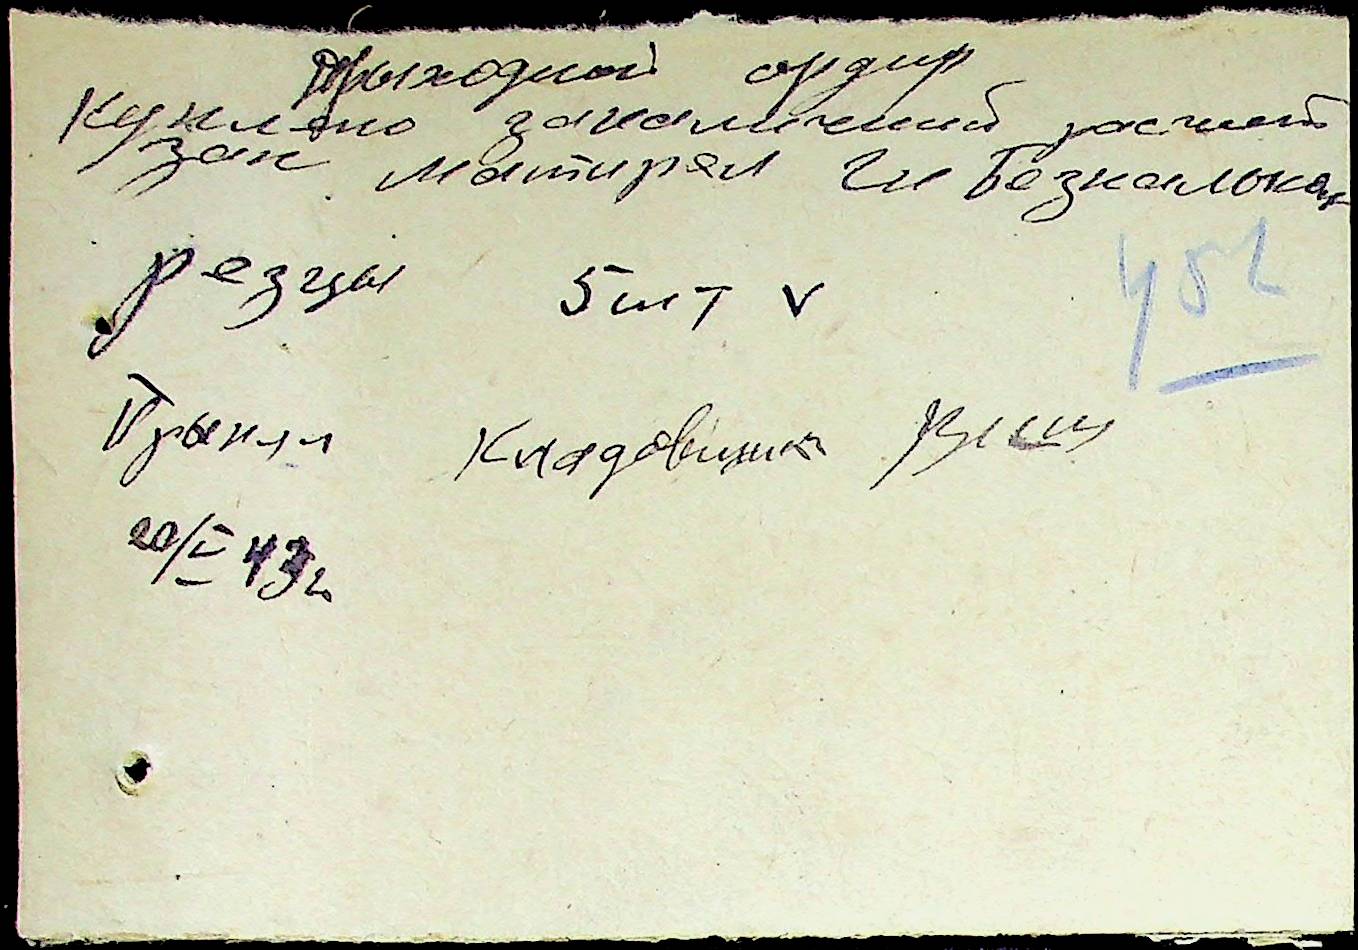 Прыходной ордир
Куплено заналичный расчет
зак матирял Ги Безналька
резцы 5 шт v
452
Прынял Кладовщик
20/I 43 г.